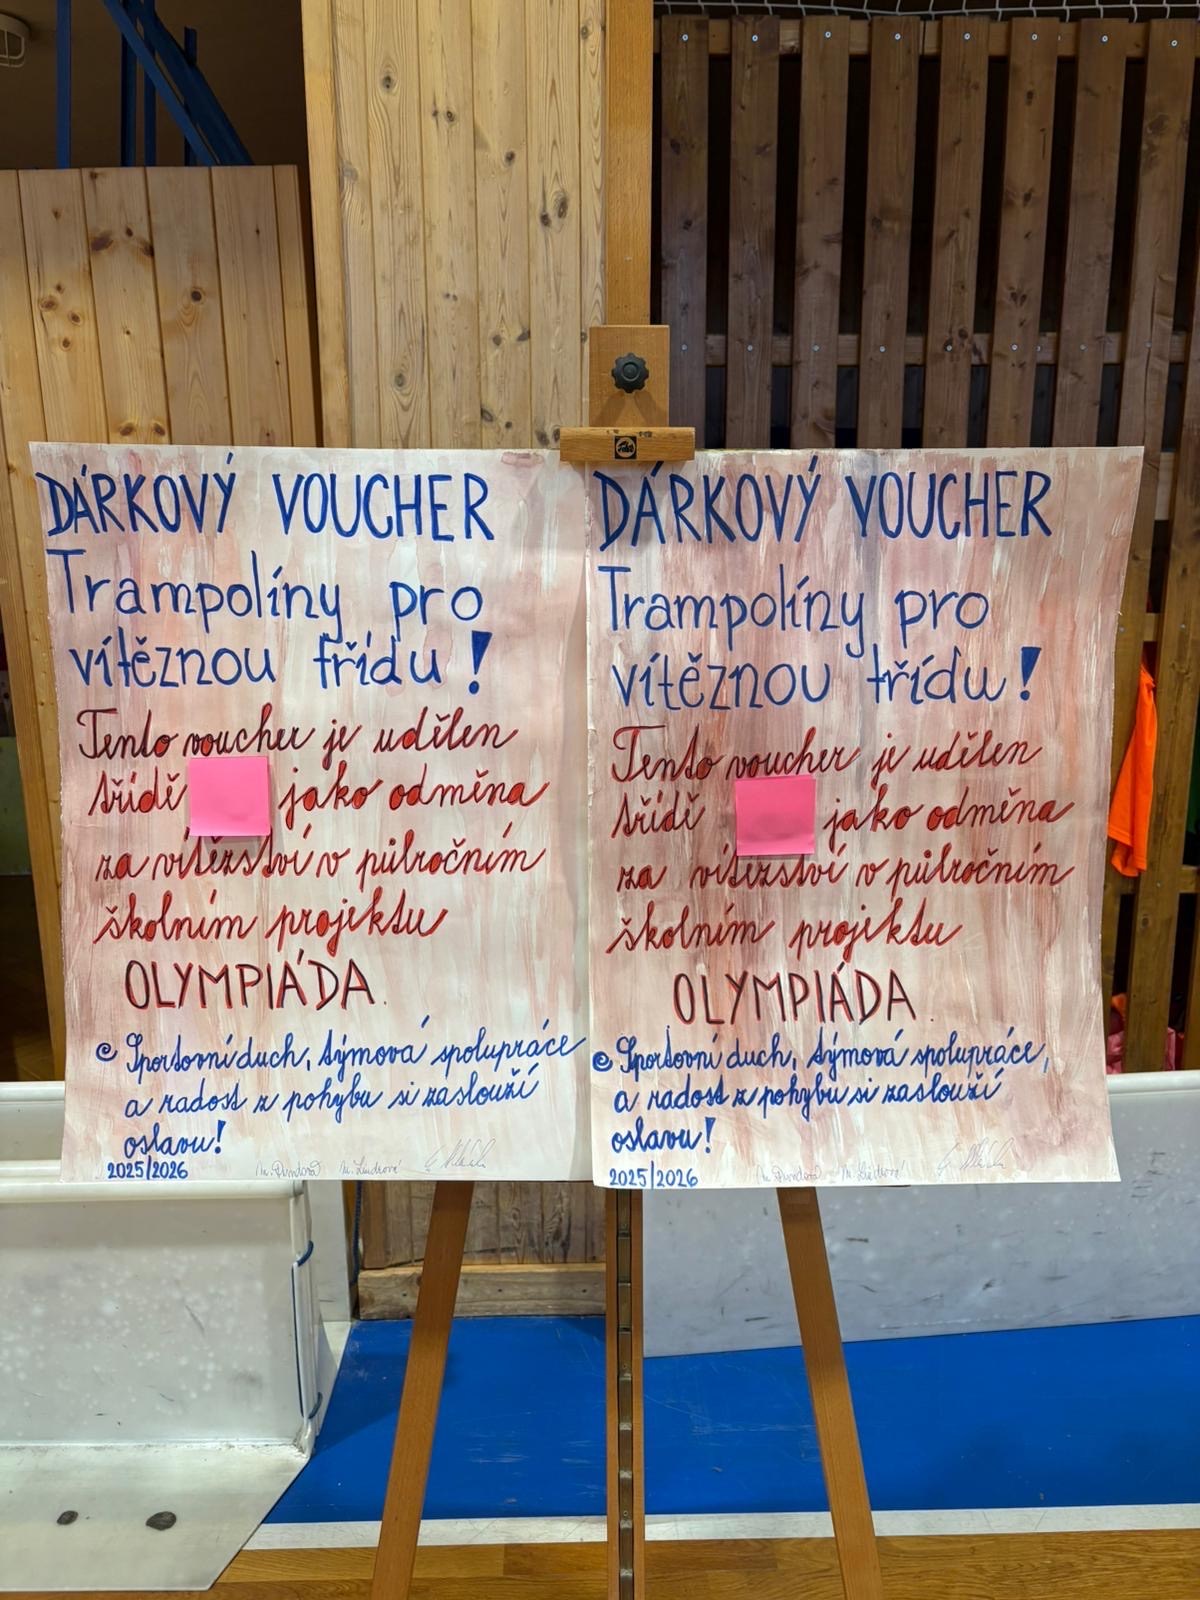 DÁRKOVÝ VOUCHER
Trampolíny pro
vítěznou třídu!
Tento voucher je udělen
třídě jako odměna
za vítězství v půlročním
školním projektu
OLYMPIÁDA.
Sportovní duch, týmová spolupráce
a radost z pohybu si zaslouží
oslavu!
2025/2026
DÁRKOVÝ VOUCHER
Trampolíny pro
vítěznou třídu!
Tento voucher je udělen
třídě jako odměna
za vítězství v půlročním
školním projektu
OLYMPIÁDA.
Sportovní duch, týmová spolupráce,
a radost z pohybu si zaslouží
oslavu!
2025/2026